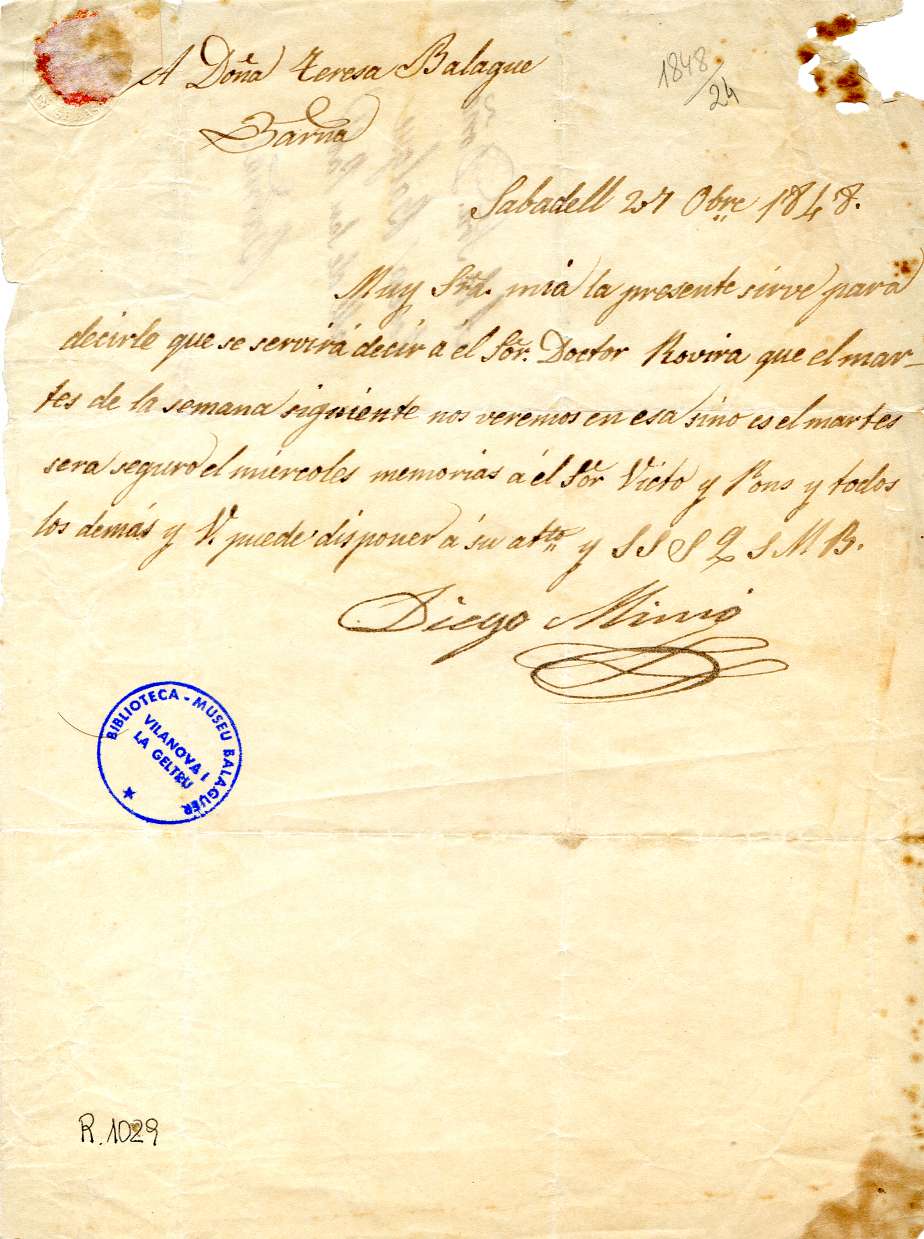 A Doña Teresa Balague
Barna
1848/24
Sabadell 27 Obre 1848.
Muy Sra. mia la presente sirve para
decirle que se servirá decir á el Sor. Doctor Rovira que el mar-
tes de la semana siguiente nos veremos en esa sino es el martes
sera seguro el miercoles memorias á el Sor Victo y Pons y todos
los demás y V. puede disponer á su atto. y S S S Q S M B.
Diego Mimó
BIBLIOTECA - MUSEU BALAGUER
VILANOVA I
LA GELTRU
R. 1029